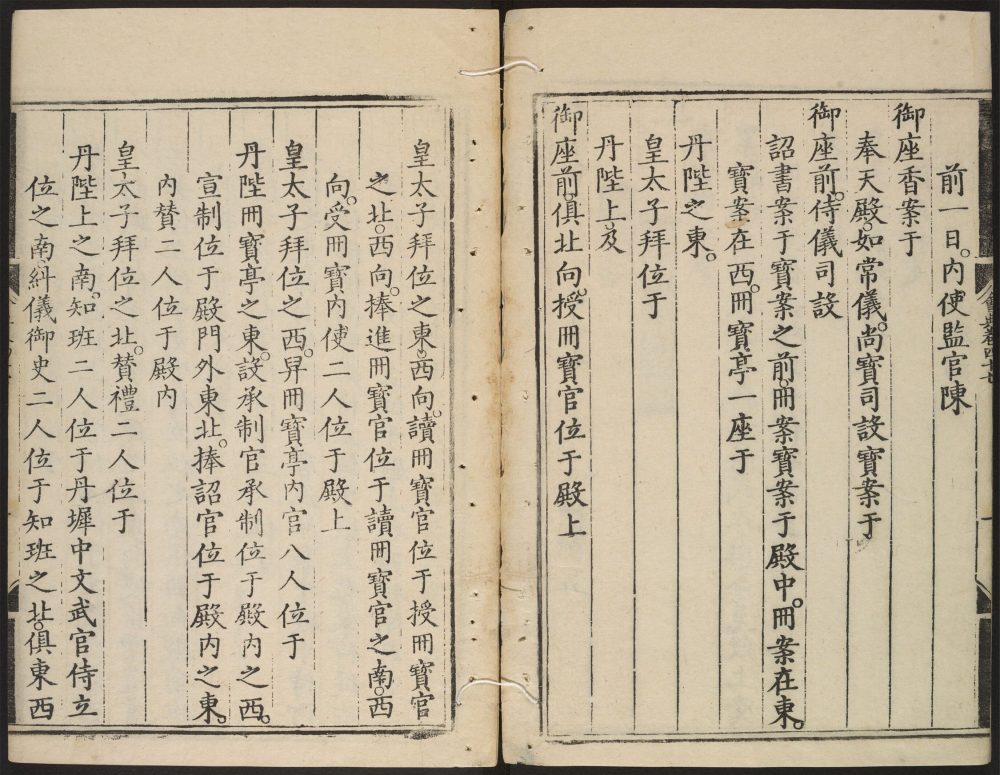 前一日。内使監官陳
御座香案于
奉天殿。如常儀。尚寶司設寶案于
御座前。侍儀司設
詔書案于寶案之前。冊案寶案于殿中。冊案在東。
寶案在西。冊寶亭一座于
丹陛之東。
皇太子拜位于
丹陛上。及
御座前。俱北向。授冊寶官位于殿上
皇太子拜位之東。西向。讀冊寶官位于授冊寶官
之北。西向。捧進冊寶官位于讀冊寶官之南。西
向。受冊寶内使二人位于殿上
皇太子拜位之西。舁冊寶亭内官八人位于
丹陛冊寶亭之東。設承制官承制位于殿内之西。
宣制位于殿門外東北。捧詔官位于殿内之東。
内贊二人位于殿内
皇太子拜位之北。贊禮二人位于
丹陛上之南。知班二人位于丹墀中文武官侍立
位之南。糾儀御史二人位于知班之北。俱東西